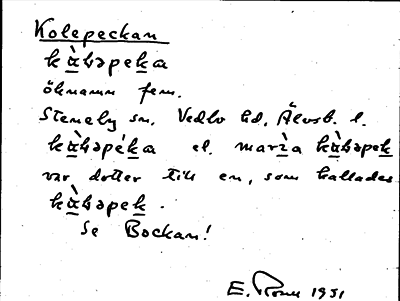 Kolepeckan
kɑ̀ꞎəpeka
öknamn fem.
Steneby sn. Vedbo hd, Älvsb. l.
kɑ̀ꞎəpéka el. marìa kɑ̀ꞎəpek
var dotter till en, som kallades
kɑ̀ꞎəpek.
Se Bockan!
E. 1931